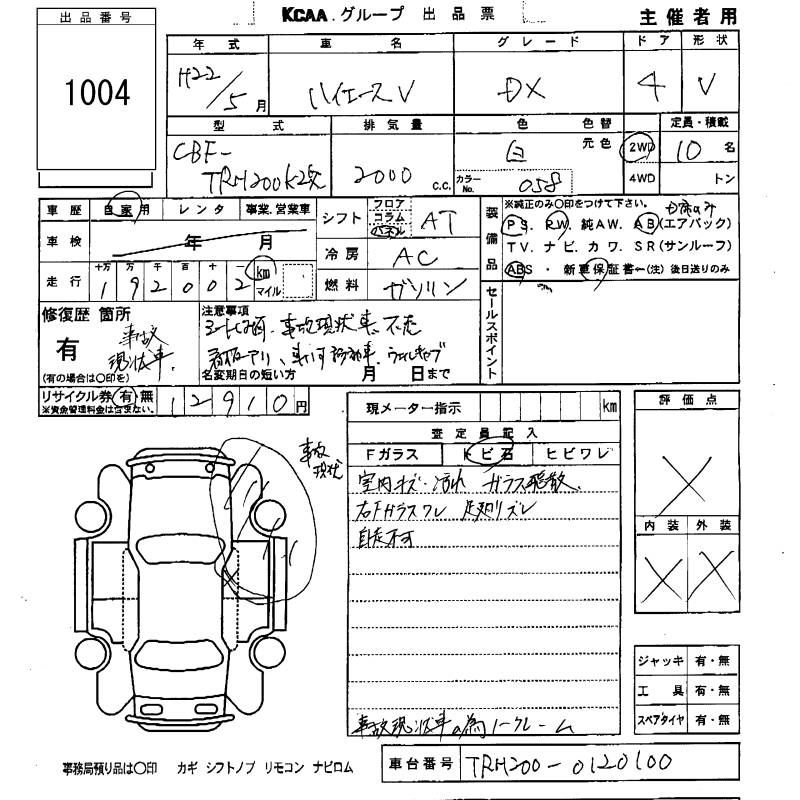 KCAA.グループ 出品票 主催者用
出品番号
1004
年式 車名 グレード ドア 形状
H22/5月 ハイエースV DX 4 V
型式 排気量 色 色替 定員・積載
CBF-
TRH200K改 2000 C.C. 白 元色 2WD 10名
カラーNo. 058 4WD トン
車歴 自家用 レンタ 事業.営業車
シフト フロア コラム パネル AT
車検 年 月
冷房 AC
走行 十万 万 千 百 十
192002 km マイル
燃料 ガソリン
装備品 ※純正のみ〇印をつけて下さい。
PS. PW. 純AW. AB(エアバック)
TV. ナビ. カワ. SR(サンルーフ)
ABS ・ 新車保証書←(注) 後日送りのみ
セールスポイント
修復歴 箇所
有 事故現状車.
(有の場合は〇印を)
注意事項
事故現状車.
名変期日の短い方 月 日まで
リサイクル券 有 無 12910円
※資金管理料金は含まない.
現メーター指示 km
査定員記入
Fガラス トビ石 ヒビワレ
室内キズ・汚れ ガラス飛散.
右Fガラスワレ 足廻リズレ
自走不可
事故現状車の為ノークレーム
事故現状
評価点
X
内装 外装
X X
ジャッキ 有・無
工具 有・無
スペアタイヤ 有・無
事務局預り品は〇印 カギ シフトノブ リモコン ナビロム
車台番号 TRH200-0120100